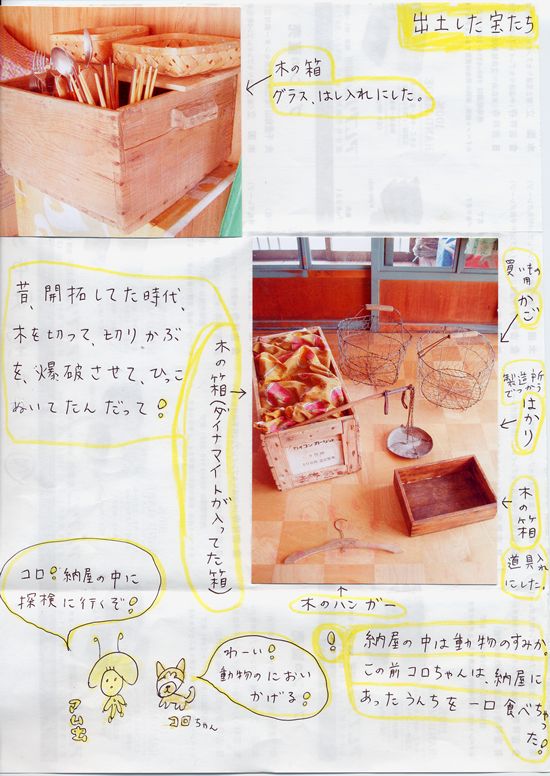 出土した宝たち
木の箱
グラス、はし入れにした。
昔、開拓してた時代、
木を切って、切りかぶ
を、爆破させて、ひっこ
ぬいてたんだって!
木の箱(ダイナマイトが入ってた箱)
買いもの用
かご
製造所でつかう
はかり
木の箱
道具入れにした。
木のハンガー
コロ!納屋の中に
探検に行くぞ!
わーい!
動物のにおい
かげる!
コロちゃん
! 納屋の中は動物のすみか。
この前コロちゃんは、納屋に
あったうんちを一口食べちゃった!